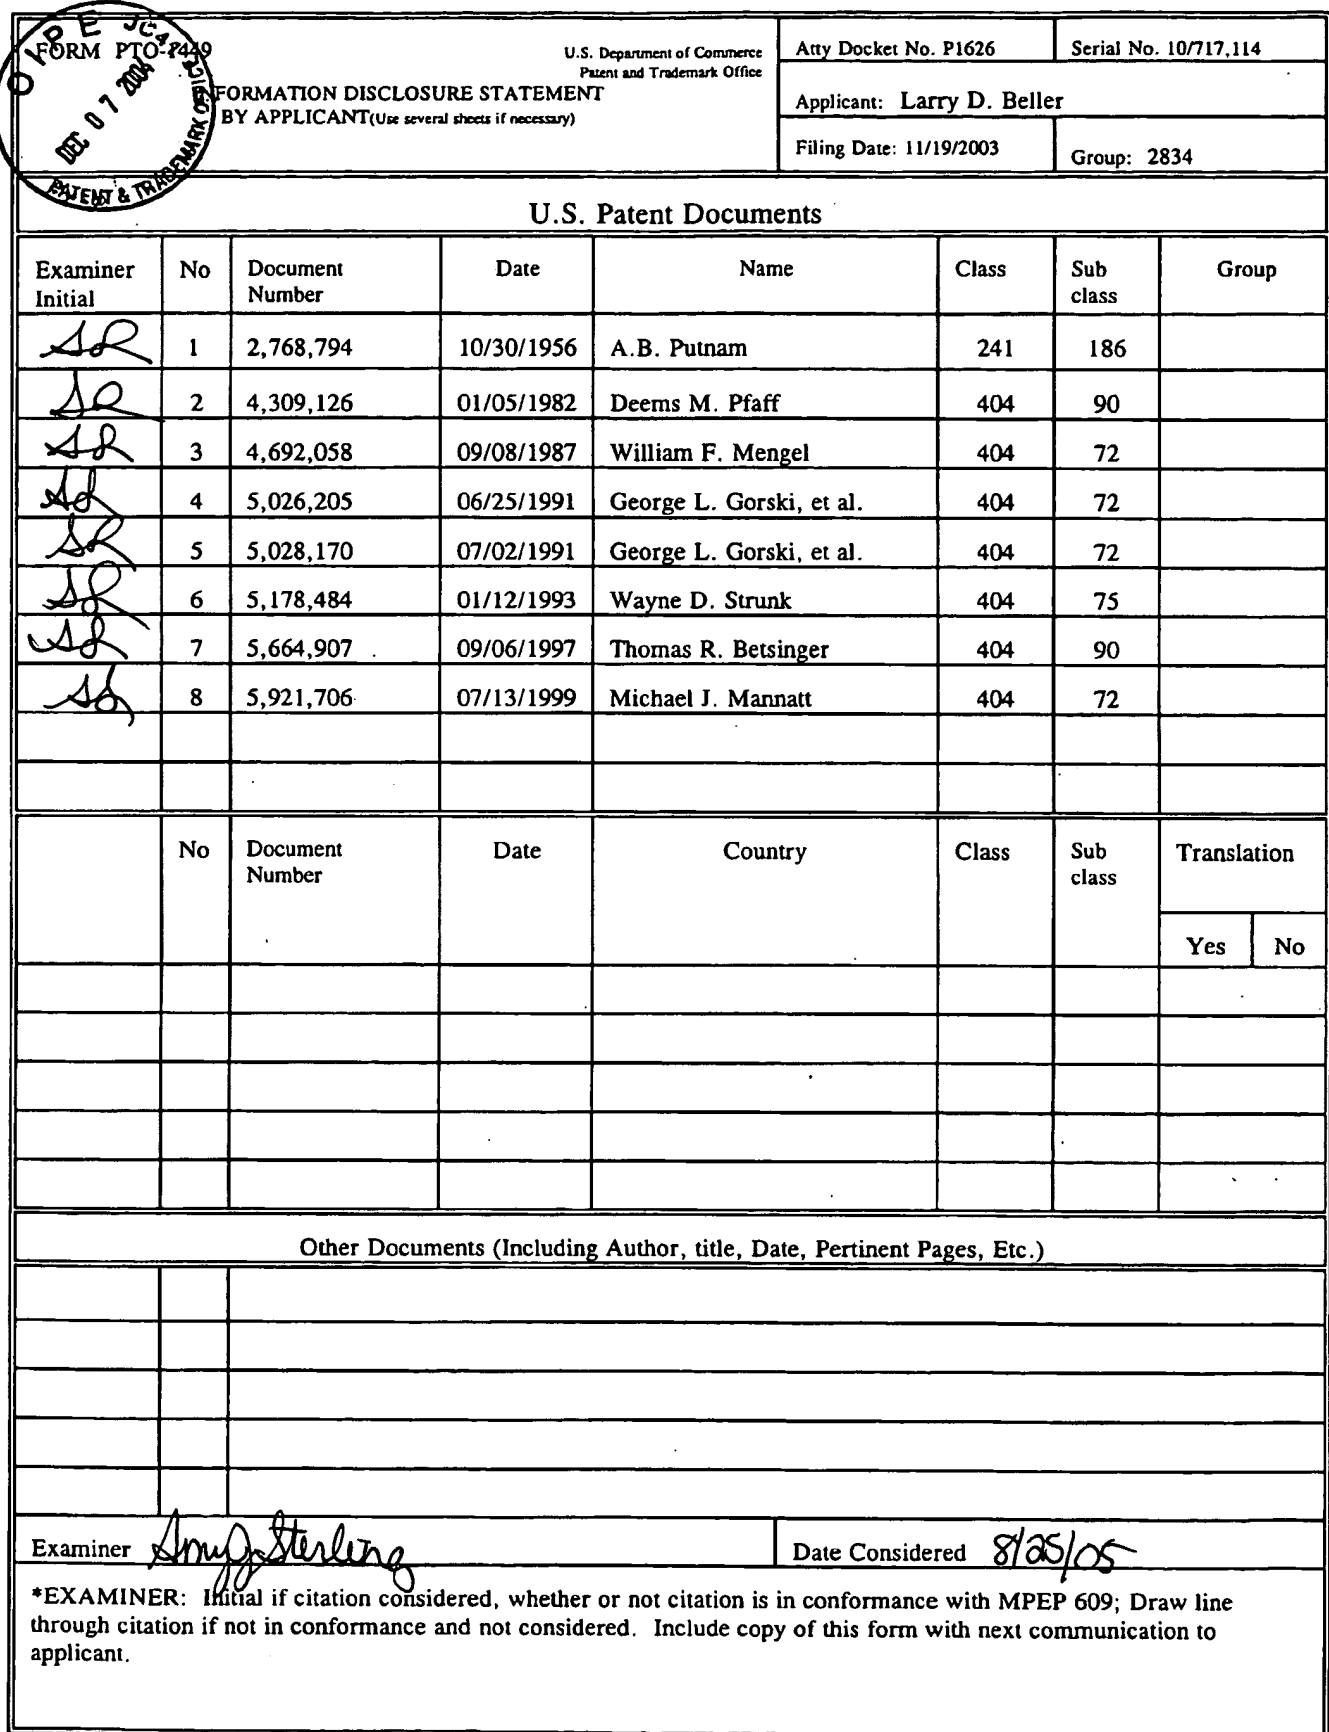 OIPE JC47
DEC 07 2004
PATENT & TRADEMARK OFFICE
FORM PTO-1449
U.S. Department of Commerce
Patent and Trademark Office
FORMATION DISCLOSURE STATEMENT
BY APPLICANT(Use several sheets if necessary)
Atty Docket No. P1626 Serial No. 10/717,114
Applicant: Larry D. Beller
Filing Date: 11/19/2003 Group: 2834
U.S. Patent Documents
Examiner Initial No Document Number Date Name Class Sub class Group
1 2,768,794 10/30/1956 A.B. Putnam 241 186
2 4,309,126 01/05/1982 Deems M. Pfaff 404 90
3 4,692,058 09/08/1987 William F. Mengel 404 72
4 5,026,205 06/25/1991 George L. Gorski, et al. 404 72
5 5,028,170 07/02/1991 George L. Gorski, et al. 404 72
6 5,178,484 01/12/1993 Wayne D. Strunk 404 75
7 5,664,907 09/06/1997 Thomas R. Betsinger 404 90
8 5,921,706 07/13/1999 Michael J. Mannatt 404 72
No Document Number Date Country Class Sub class Translation
Yes No
Other Documents (Including Author, title, Date, Pertinent Pages, Etc.)
Examiner Amy J. Sterling Date Considered 8/25/05
*EXAMINER: Initial if citation considered, whether or not citation is in conformance with MPEP 609; Draw line
through citation if not in conformance and not considered. Include copy of this form with next communication to
applicant.